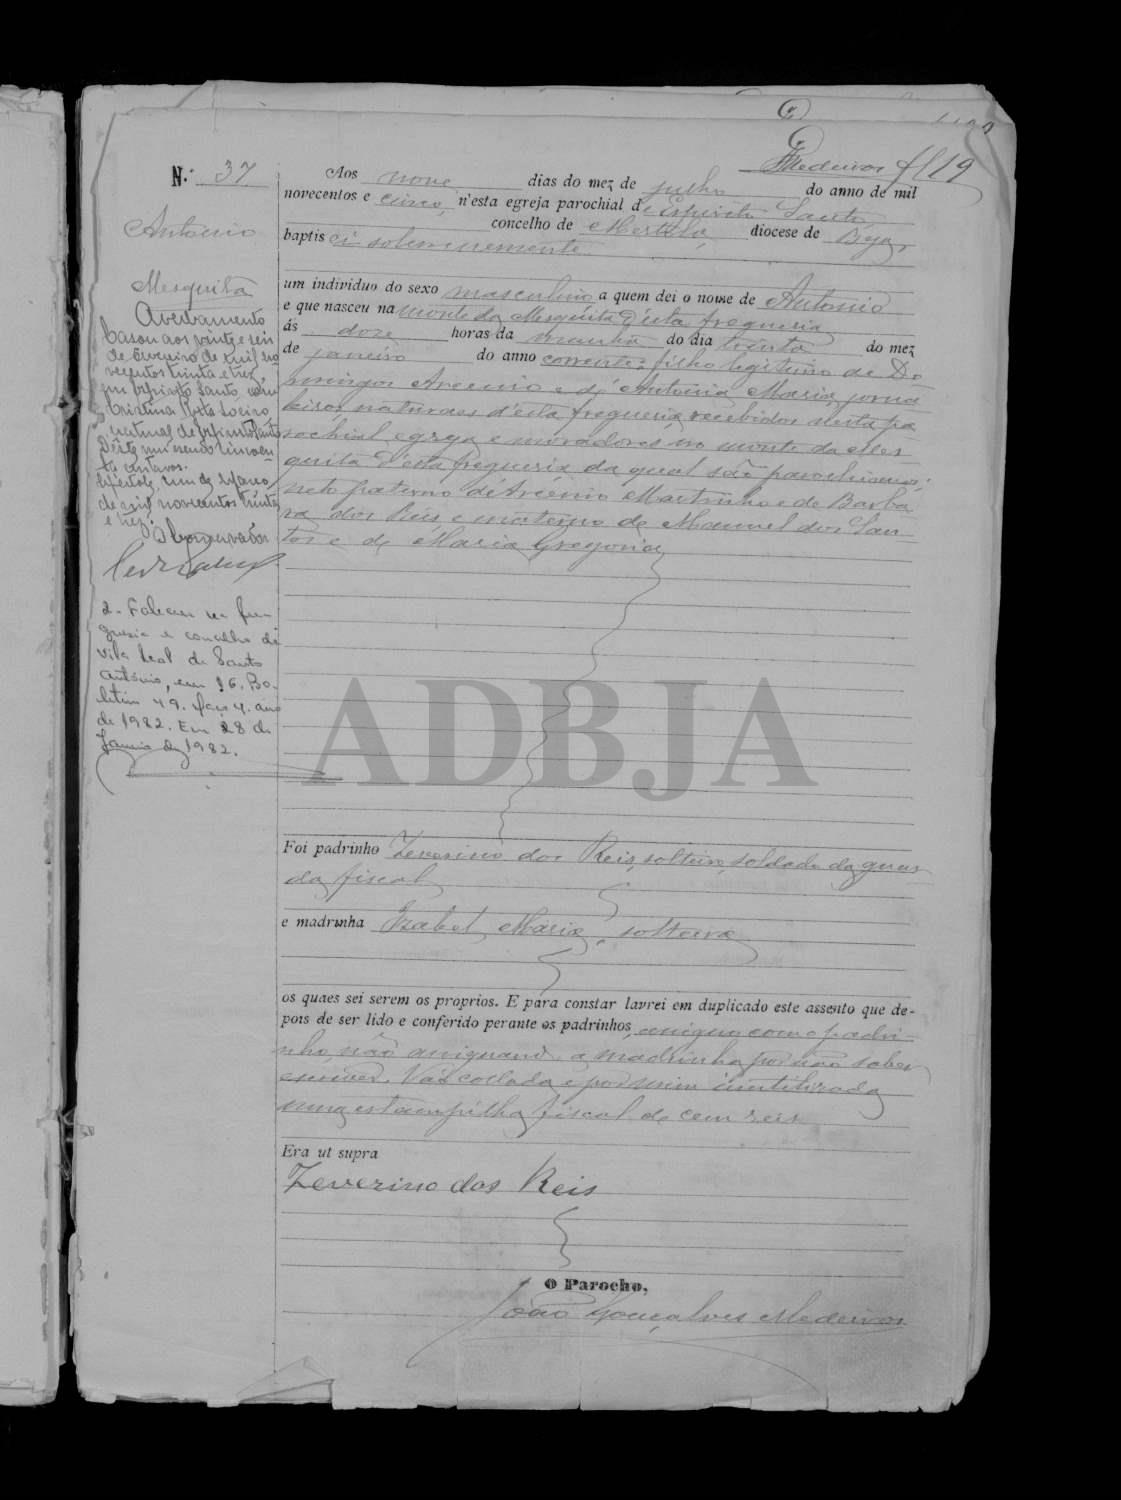 Medeiros fl 19
N.º 37
Antonio
Mesquita
Aos nove dias do mez de julho do anno de mil
novecentos e cinco, n'esta egreja parochial de Espirito Santo,
concelho de Mertola, diocese de Beja,
baptisei solemnemente
um individuo do sexo masculino a quem dei o nome de Antonio
e que nasceu na monte da Mesquita d'esta freguesia
ás doze horas da manhã do dia trinta do mez
de janeiro do anno corrente; filho legitimo de Do-
mingos Arcenio e de Antonia Maria, jorna-
leiros, naturaes d'esta freguesia, recebidos nesta pa-
rochial egreja e moradores no monte da Mes-
quita d'esta freguesia da qual são parochianos;
neto paterno d'Arcenio Martinho e de Barba-
ra dos Reis e materno de Manuel dos San-
tos e de Maria Gregoria
Averbamento
Casou aos vinte e seis
de Fevereiro de mil no-
vecentos trinta e tres,
em Espirito Santo com
Cristina Rosta
natural de Espirito Santo
Dêste um escudo cincoen-
ta centavos.
Mértola, um de Março
de mil novecentos trinta
e tres.
O Conservador
2- Faleceu na fre-
guesia e concelho de
Vila Real de Santo
António, em 16. Bo-
letim 49. Maço 4. ano
de 1982. Em 28 de
Janeiro de 1982.
ADBJA
Foi padrinho Zeverino dos Reis, solteiro, soldado da guar-
da fiscal
e madrinha Izabel Maria, solteira
os quaes sei serem os proprios. E para constar lavrei em duplicado este assento que de-
pois de ser lido e conferido perante os padrinhos, assigno com o padri-
nho, não assignando a madrinha por não saber
escrever. Vae collada e por mim inutilizada
uma estampilha fiscal de cem reis
Era ut supra
Zeverino dos Reis
O Parocho,
João Gonçalves Medeiros